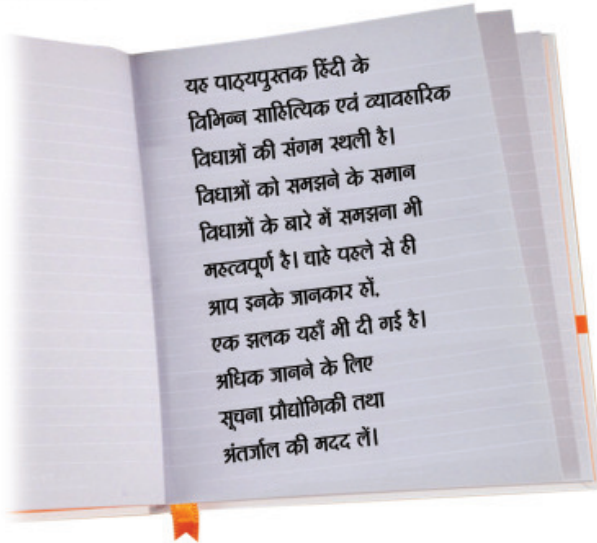 यह पाठ्यपुस्तक हिंदी के
विभिन्न साहित्यिक एवं व्यावहारिक
विधाओं की संगम स्थली है।
विधाओं को समझने के समान
विधाओं के बारे में समझना भी
महत्वपूर्ण है। चाहे पहले से ही
आप इनके जानकार हों,
एक झलक यहाँ भी दी गई है।
अधिक जानने के लिए
सूचना प्रौद्योगिकी तथा
अंतर्जाल की मदद लें।